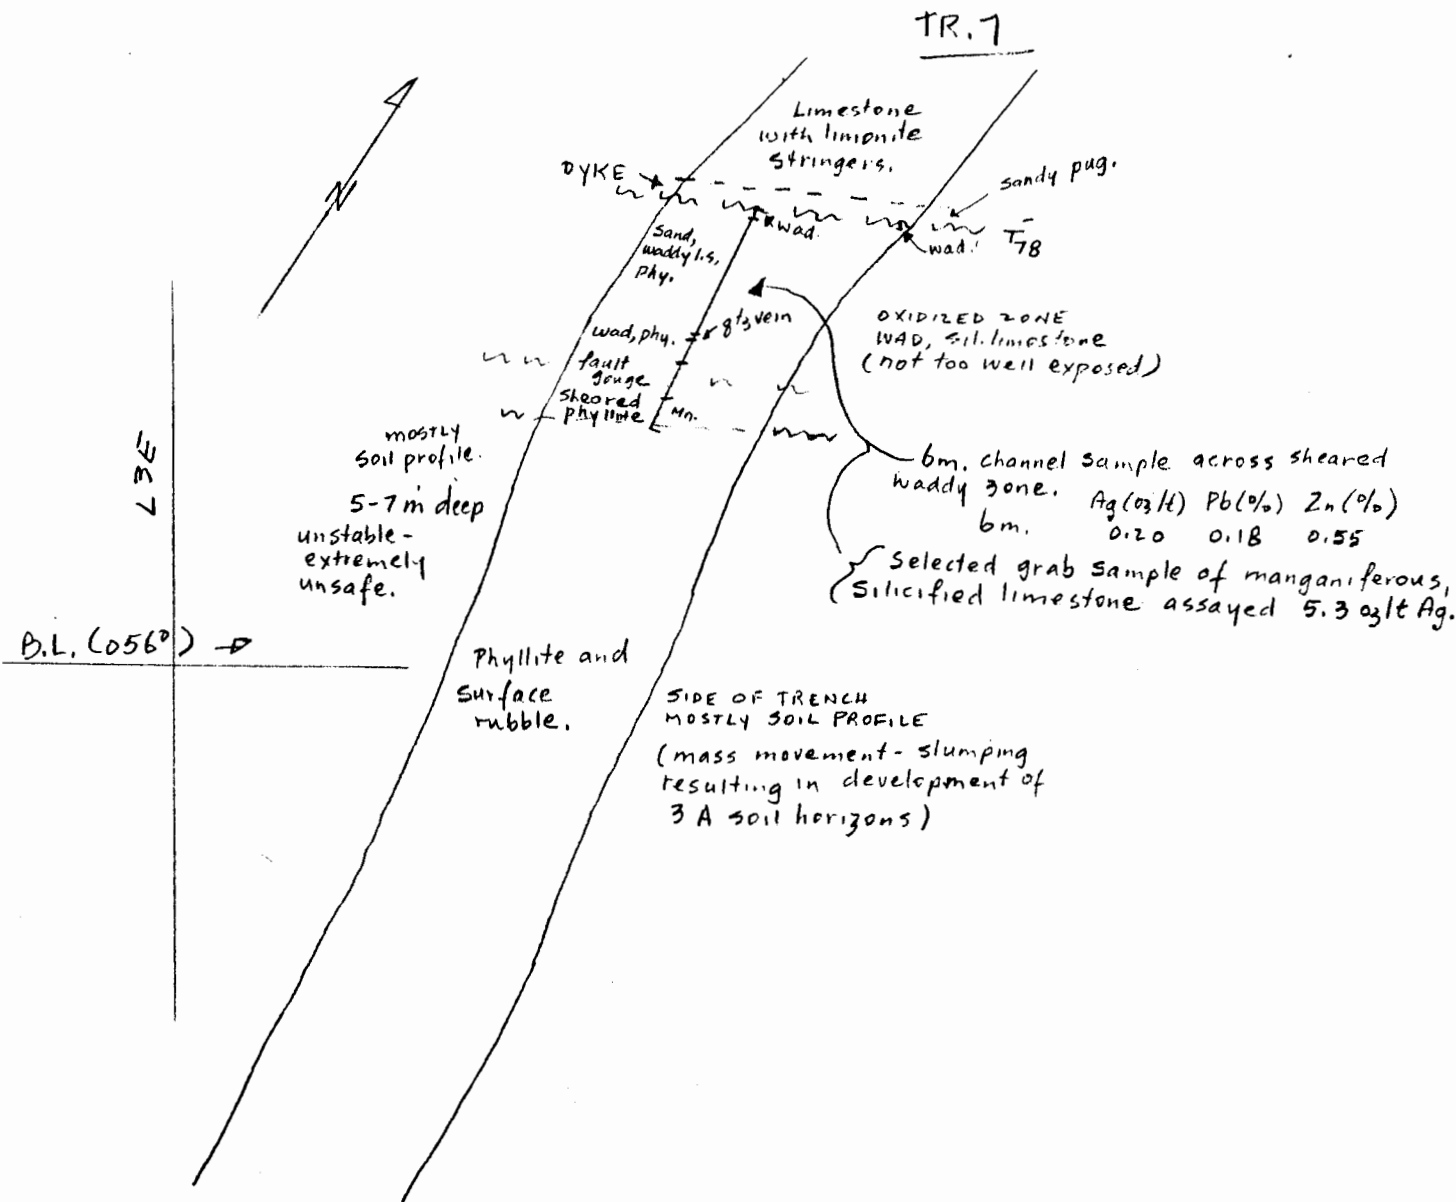 TR.7
Limestone
with limonite
stringers.
DYKE
sandy pug.
wad.
wad.
78
Sand,
waddy l.s,
phy.
qtz vein
wad, phy.
OXIDIZED ZONE
WAD, sil. limestone
(not too well exposed)
fault
gouge
sheared
phyllite
Mn.
N
L3E
mostly
soil profile.
5-7 m deep
unstable-
extremely
unsafe.
6m. channel sample across sheared
waddy zone.
Ag(oz/t) Pb(%) Zn(%)
6m. 0.20 0.18 0.55
Selected grab sample of manganiferous,
silicified limestone assayed 5.3 oz/t Ag.
B.L. (056°)
Phyllite and
surface
rubble.
SIDE OF TRENCH
MOSTLY SOIL PROFILE
(mass movement - slumping
resulting in development of
3 A soil horizons)